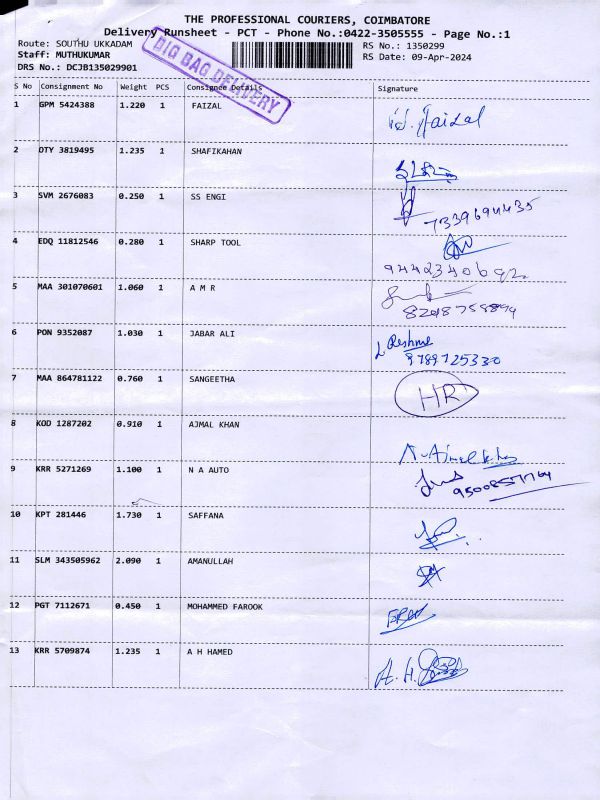 THE PROFESSIONAL COURIERS, COIMBATORE
Delivery Runsheet - PCT - Phone No.:0422-3505555 - Page No.:1
Route: SOUTHU UKKADAM
RS No.: 1350299
Staff: MUTHUKUMAR
RS Date: 09-Apr-2024
DRS No.: DCJB135029901
BIG BAG DELIVERY
S No Consignment No Weight PCS Consignee Details Signature
1 GPM 5424388 1.220 1 FAIZAL
2 DTY 3819495 1.235 1 SHAFIKAHAN
3 SVM 2676083 0.250 1 SS ENGI
7339694435
4 EDQ 11812546 0.280 1 SHARP TOOL
5 MAA 301070601 1.060 1 A M R
6 PON 9352087 1.030 1 JABAR ALI Reshma
9789725330
7 MAA 864781122 0.760 1 SANGEETHA HR
8 KOD 1287202 0.910 1 AJMAL KHAN
9 KRR 5271269 1.100 1 N A AUTO
10 KPT 281446 1.730 1 SAFFANA
11 SLM 343505962 2.090 1 AMANULLAH
12 PGT 7112671 0.450 1 MOHAMMED FAROOK
13 KRR 5709874 1.235 1 A H HAMED A. H.